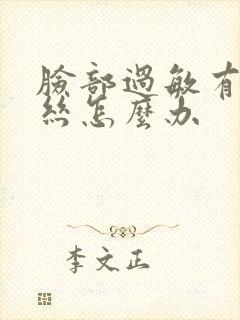 臉部過敏有
絲怎麼办
李文正